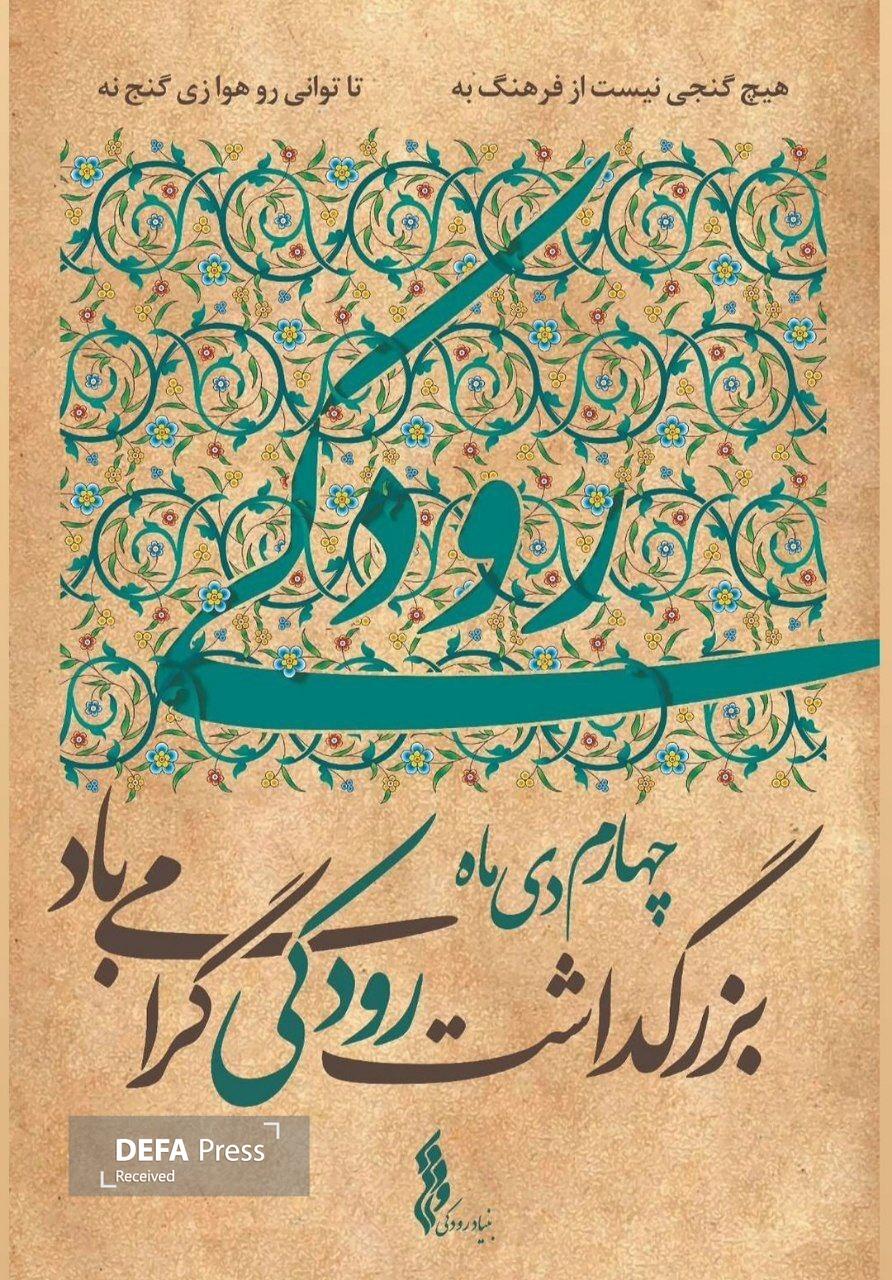 هیچ گنجی نیست از فرهنگ به تا توانی رو هوا زی گنج نه
رودکی
چهارم دی ماه
بزرگداشت رودکی گرامی باد
DEFA Press
Received
بنیاد رودکی